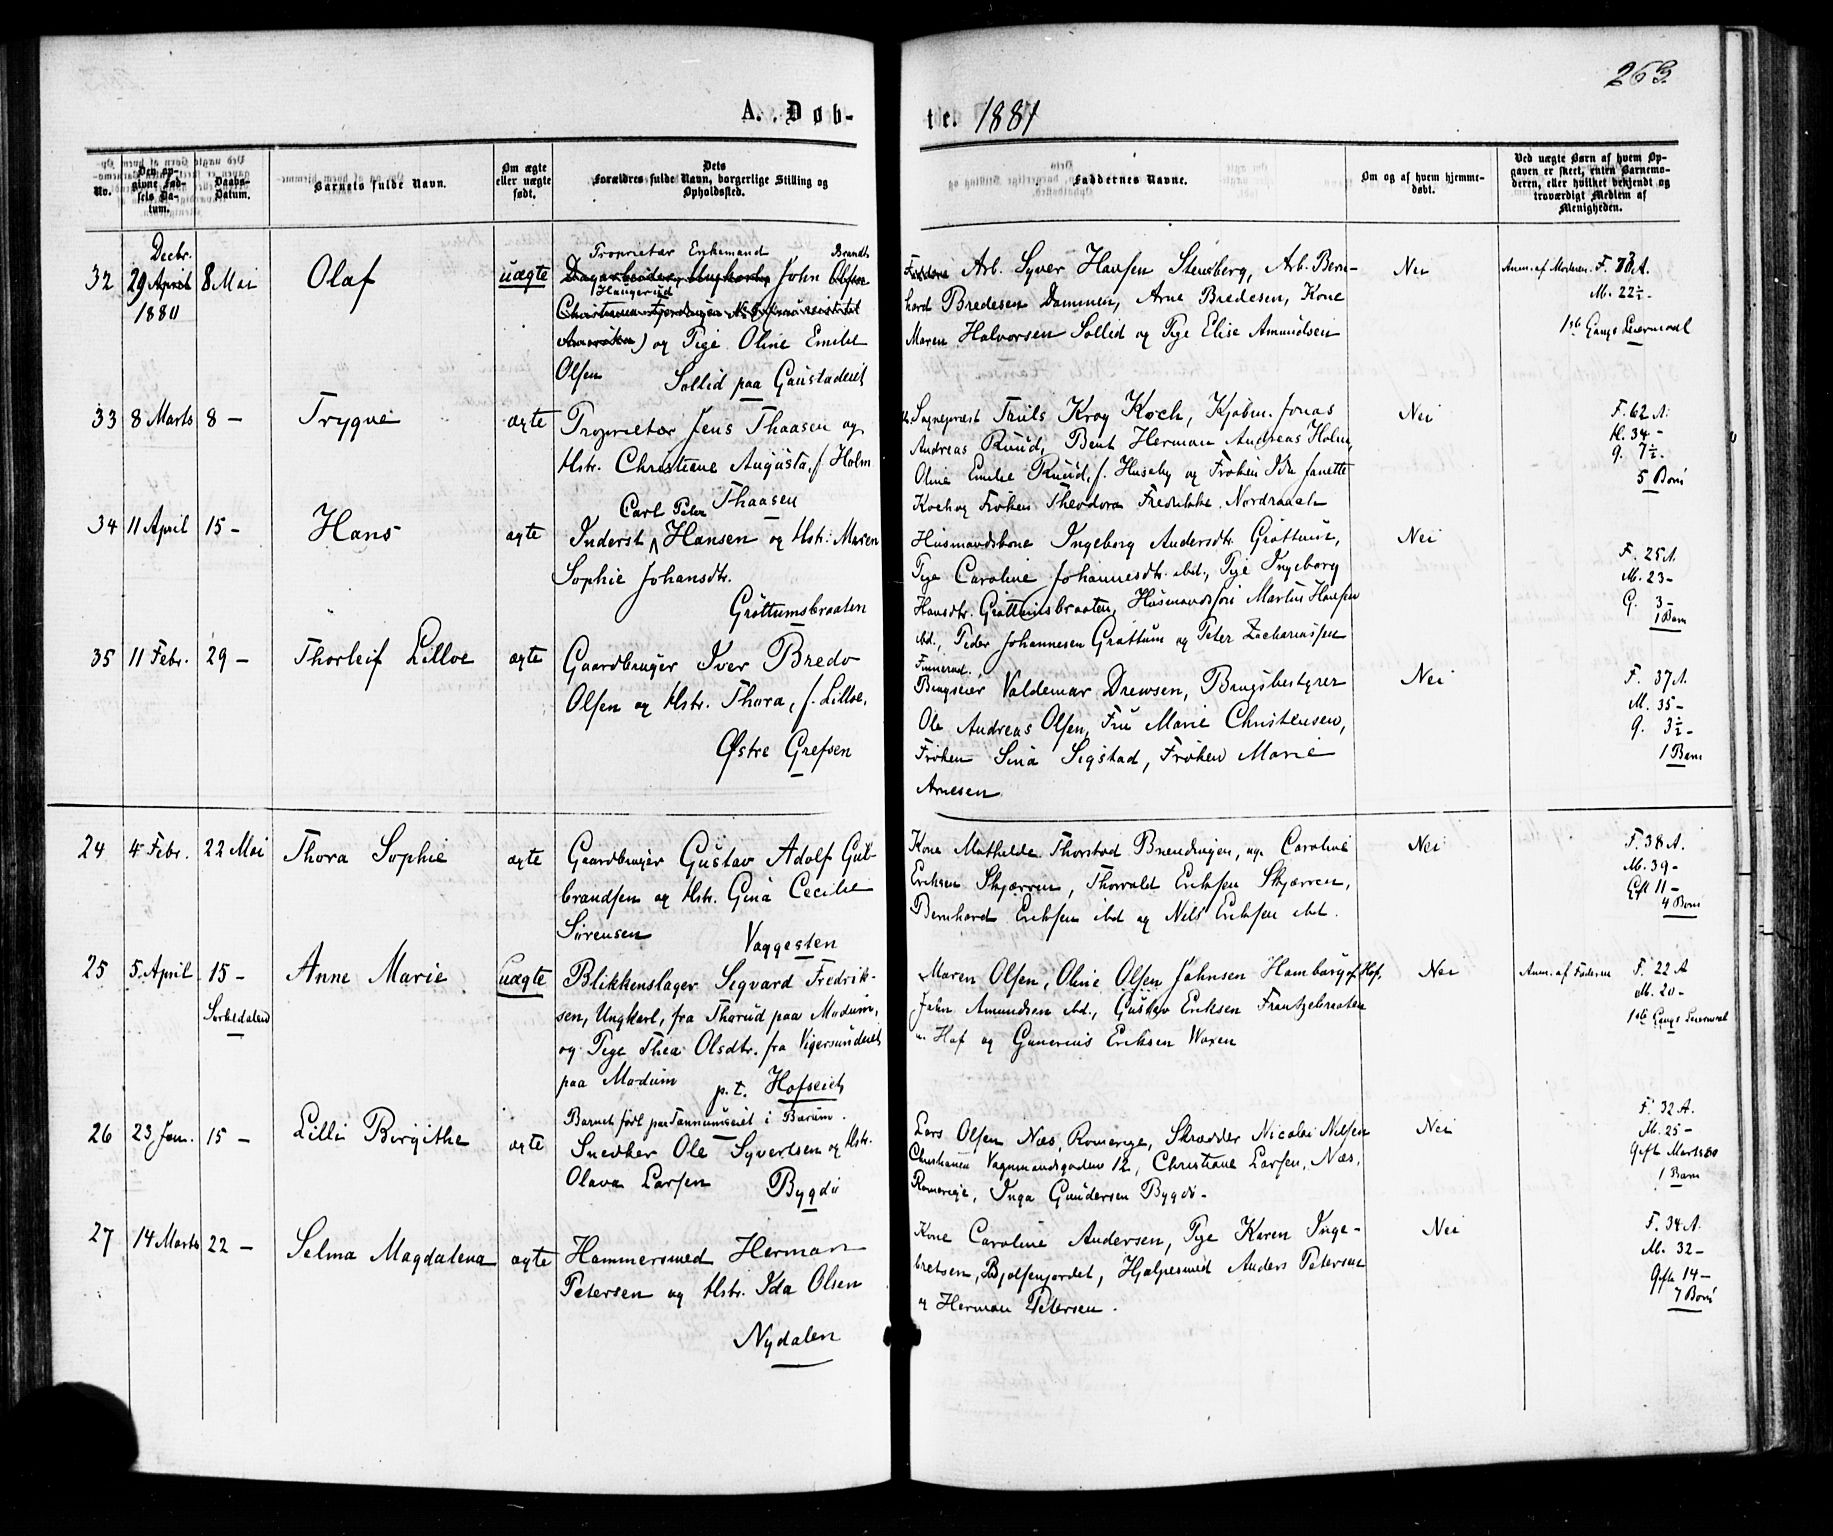 263.
A. Døb-
te. 1881
No.
Den op-
givne Fød-
sels Da-
tum.
Daabs-
Datum.
Barnets fulde Navn.
Om ægte
eller uægte
født.
Dets
Forældres fulde Navn, borgerlige Stilling og
Opholdssted.
Faddernes Navne.
Om og af hvem hjemme-
døbt.
Ved uægte Børn af hvem Op-
gaven er skeet, enten Barnemo-
deren, eller hvilket bekjendt og
troværdigt Medlem af
Menigheden.
32
Decbr.
29 April
1880
8 Mai
Olaf
uægte
Proprietær Enkemand Brandt
Dagarbeider, Ungkarl, John Olsen
Haugerud
og Pige Oline Emilie
Olsen Sollid paa Gaustadeiet
Arb. Syver Hansen Stensberg, Arb. Bern-
hard Bredesen Dammen, Arne Bredesen, Kone
Maren Halvorsen Sollid og Pige Elise Amundsen
Nei
Anm. af Moderen. F. 73 A.
M. 22½-
1ste Gangs Leiermaal
33
8 Marts
8 -
Trygve
ægte
Proprietær Jens Thaasen og
Hstr. Christiane Augusta, f. Holm
Thaasen
Sogneprest Truls Krog Koch, Kjøbm. Jonas
Andreas Ruud, Bent Herman Andreas Holm,
Oline Emilie Ruud, f. Huseby og Frøken Ida Janette
Koch og Frøken Theodora Fredrikke Nordraach
Nei
F. 62 A.
M. 34 -
G. 7½-
5 Børn
34
11 April
15 -
Hans
ægte
Carl Peter
Inderst Hansen og Hstr. Maren
Sophie Johansdtr.
Grøttumsbraaten
Husmandskone Ingeborg Andersdtr. Grøttum,
Pige Caroline Johannesdtr. ibd., Pige Ingeborg
Hansdtr. Grøttumsbraaten, Husmandssøn Martin Hansen
ibd., Peder Johannesen Grøttum og Peter Zachariassen
Finnerud.
Nei
F. 25 A.
M. 23 -
G. 3 -
1 Barn
35
11 Febr.
29 -
Thorleif Lilloe
ægte
Gaardbruger Iver Bredo
Olsen og Hstr. Thora, f. Lilloe,
Østre Grefsen
Brugseier Valdemar Drewsen, Brugsbestyrer
Ole Andreas Olsen, Fru Marie Christensen,
Frøken Sina Sigstad, Frøken Marie
Arnesen.
Nei
F. 37 A.
M. 35 -
G. 3½-
1 Barn
24
4 Febr.
22 Mai
Thora Sophie
ægte
Gaardbruger Gustav Adolf Gul-
brandsen og Hstr. Gina Cecilie
Sørensen Vaggesten
Kone Mathilde Thorstad Brændingen, ug. Caroline
Eriksen Skjærven, Thorvald Eriksen Skjærven,
Bernhard Eriksen ibd og Nils Eriksen ibd.
Nei
F. 38 A.
M. 39 -
Gift 11 -
4 Børn
25
5. April
15 -
Sørkedalen
Anne Marie
uægte
Blikkenslager Sigvard Fredrik-
sen, Ungkarl, fra Thorud paa Modum,
og Pige Thea Olsdtr. fra Vigersundeiet
paa Modum p. t. Hofseiet
Maren Olsen, Oline Olsen Johnsen Hamborg af Hof,
John Amundsen ibd., Gustav Eriksen Frantzebraaten
u. Hof og Gunerius Eriksen Woxen
Nei
Anm. af Faderen
F. 22 A
M. 20 -
1ste Gangs Leiermaal
26
23 Jan.
15 -
Lilli Birgithe
ægte
Barnet født paa Tanumseiet i Bærum.
Snedker Ole Syvertsen og Hstr.
Olava Larsen Bygdø
Lars Olsen Næs, Romerige, Skrædder Nicolai Nilsen
Christiania Vognmandsgaden 12, Christiane Larsen, Næs,
Romerige, Inga Gundersen Bygdø -
Nei
F. 32 A.
M. 25 -
Gift Marts 80
1 Barn
27
14 Marts
22 -
Selma Magdalena
ægte
Hammersmed Herman
Petersen og Hstr. Ida Olsen
Nydalen
Kone Caroline Andersen, Pige Karen Inge-
bretsen, Bjølsenjordet, Hjælpesmed Anders Petersen
og Herman Petersen.
Nei
F. 34 A.
M. 32 -
Gift 14 -
7 Børn